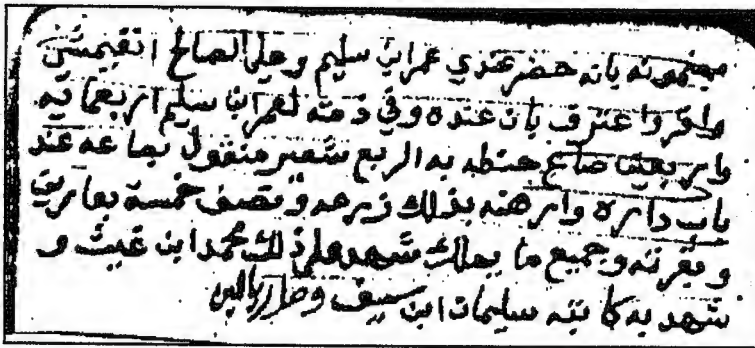 مضمونه بانه حضر عندي عمر ابن سليم وعلي الصالح
واقر واعترف بان عنده وفي ذمته لعمر ابن سليم اربعمايه
واربعين صاع حنطه به الربع شعير منقول بصاعه عند
باب داره وارهنه بذلك زرعه ونصف خمسة بعارين
وبقرته وجميع ما يملك شهد على ذلك محمد ابن غيث و
شهد به كاتبه سليمان ابن سيف